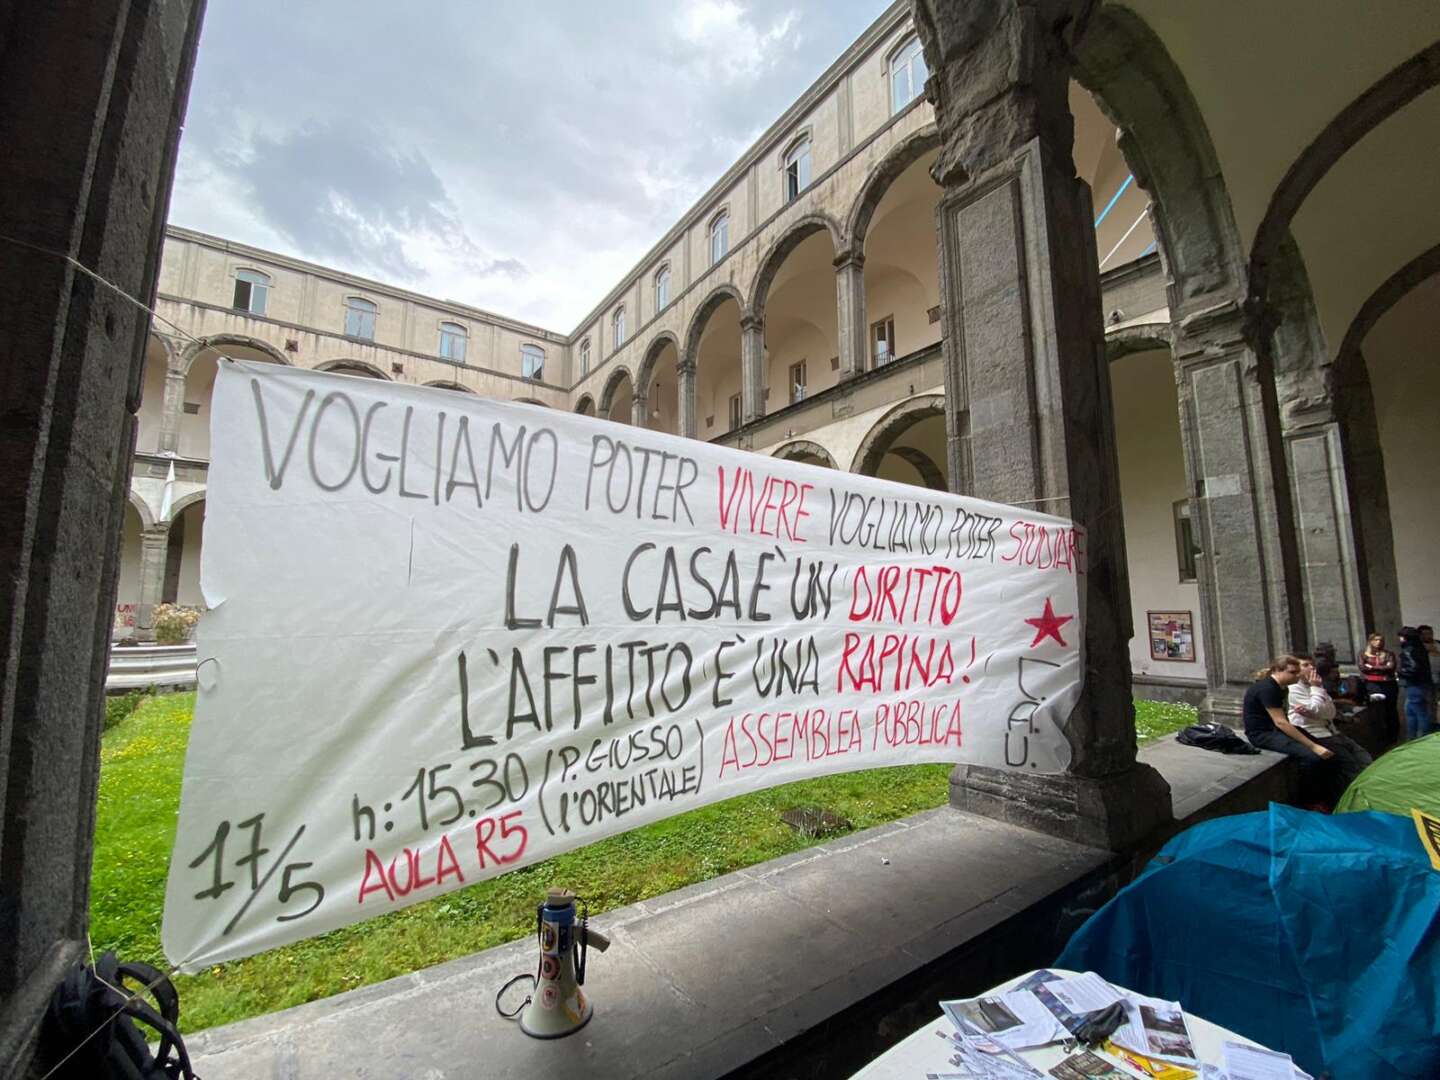 VOGLIAMO POTER VIVERE VOGLIAMO POTER STUDIARE
LA CASA È UN DIRITTO
L'AFFITTO È UNA RAPINA!
17/5 h: 15.30 (P. GIUSSO
AULA R5 l'ORIENTALE)
ASSEMBLEA PUBBLICA
C.A.U.